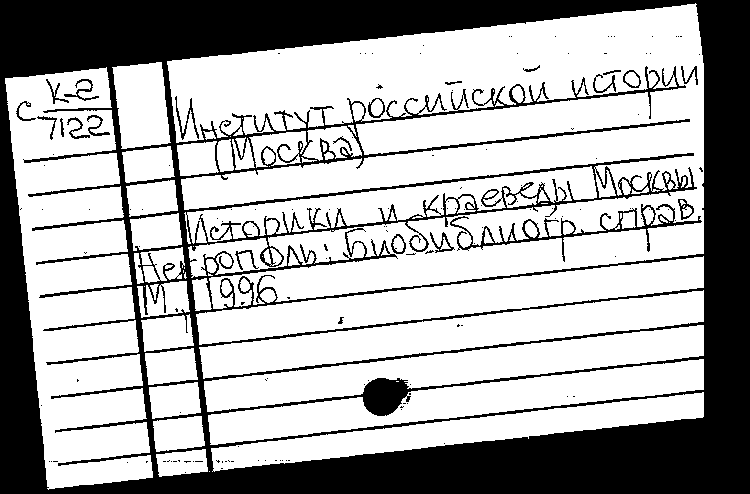 с К-2
7122
Институт российской истории
(Москва)
Историки и краеведы Москвы:
Некрополь: Биобиблиогр. справ.
М., 1996.